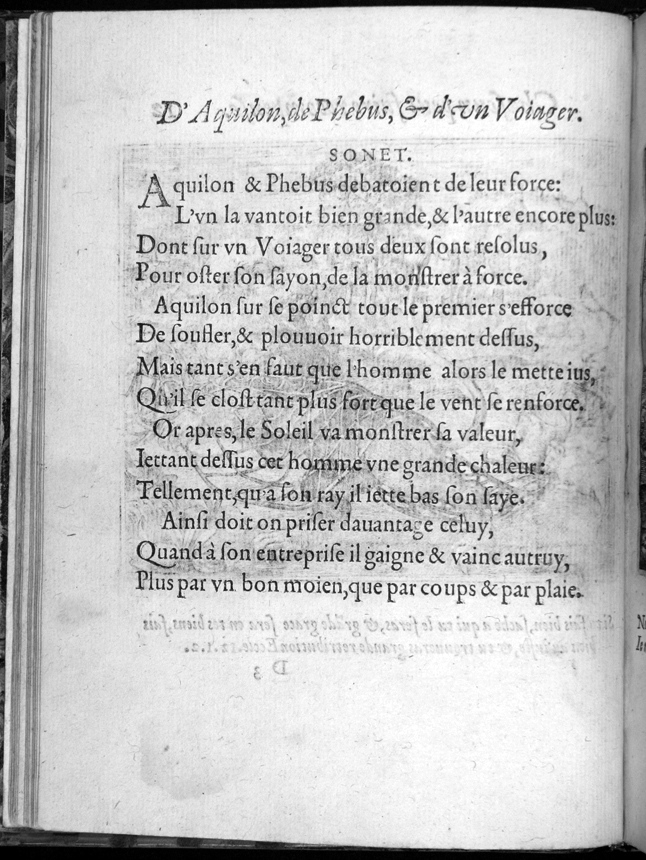 D'Aquilon, de Phebus, & d'vn Voiager.
SONET.
Aquilon & Phebus debatoient de leur force:
L'vn la vantoit bien grande, & l'autre encore plus:
Dont ſur vn Voiager tous deux ſont reſolus,
Pour oſter ſon ſayon, de la monſtrer à force.
Aquilon ſur ſe poinct tout le premier s'efforce
De ſoufler, & plouuoir horriblement deſſus,
Mais tant s'en faut que l'homme alors le mette ius,
Qu'il ſe cloſt tant plus fort que le vent ſe renforce.
Or apres, le Soleil va monſtrer ſa valeur,
Iettant deſſus cet homme vne grande chaleur:
Tellement, qu'a ſon ray il iette bas ſon ſaye.
Ainſi doit on priſer dauantage celuy,
Quand à ſon entrepriſe il gaigne & vainc autruy,
Plus par vn bon moien, que par coups & par plaie.
D 3